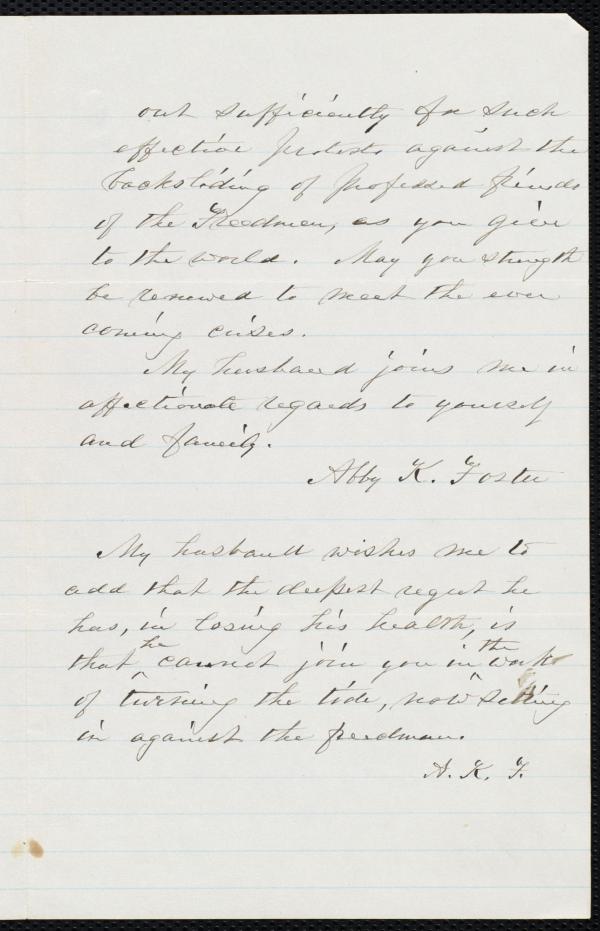 out sufficiently for such
effective protests against the
backsliding of professed friends
of the Freedmen, as you give
to the world. May you strength
be renewed to meet the ever
coming crises.
My husband joins me in
affectionate regards to yourself
and family.
Abby K. Foster
My husband wishes me to
add that the deepest regret he
has, in losing his health, is
that he cannot join you in the work
of turning the tide, now setting
in against the freedman.
A. K. F.